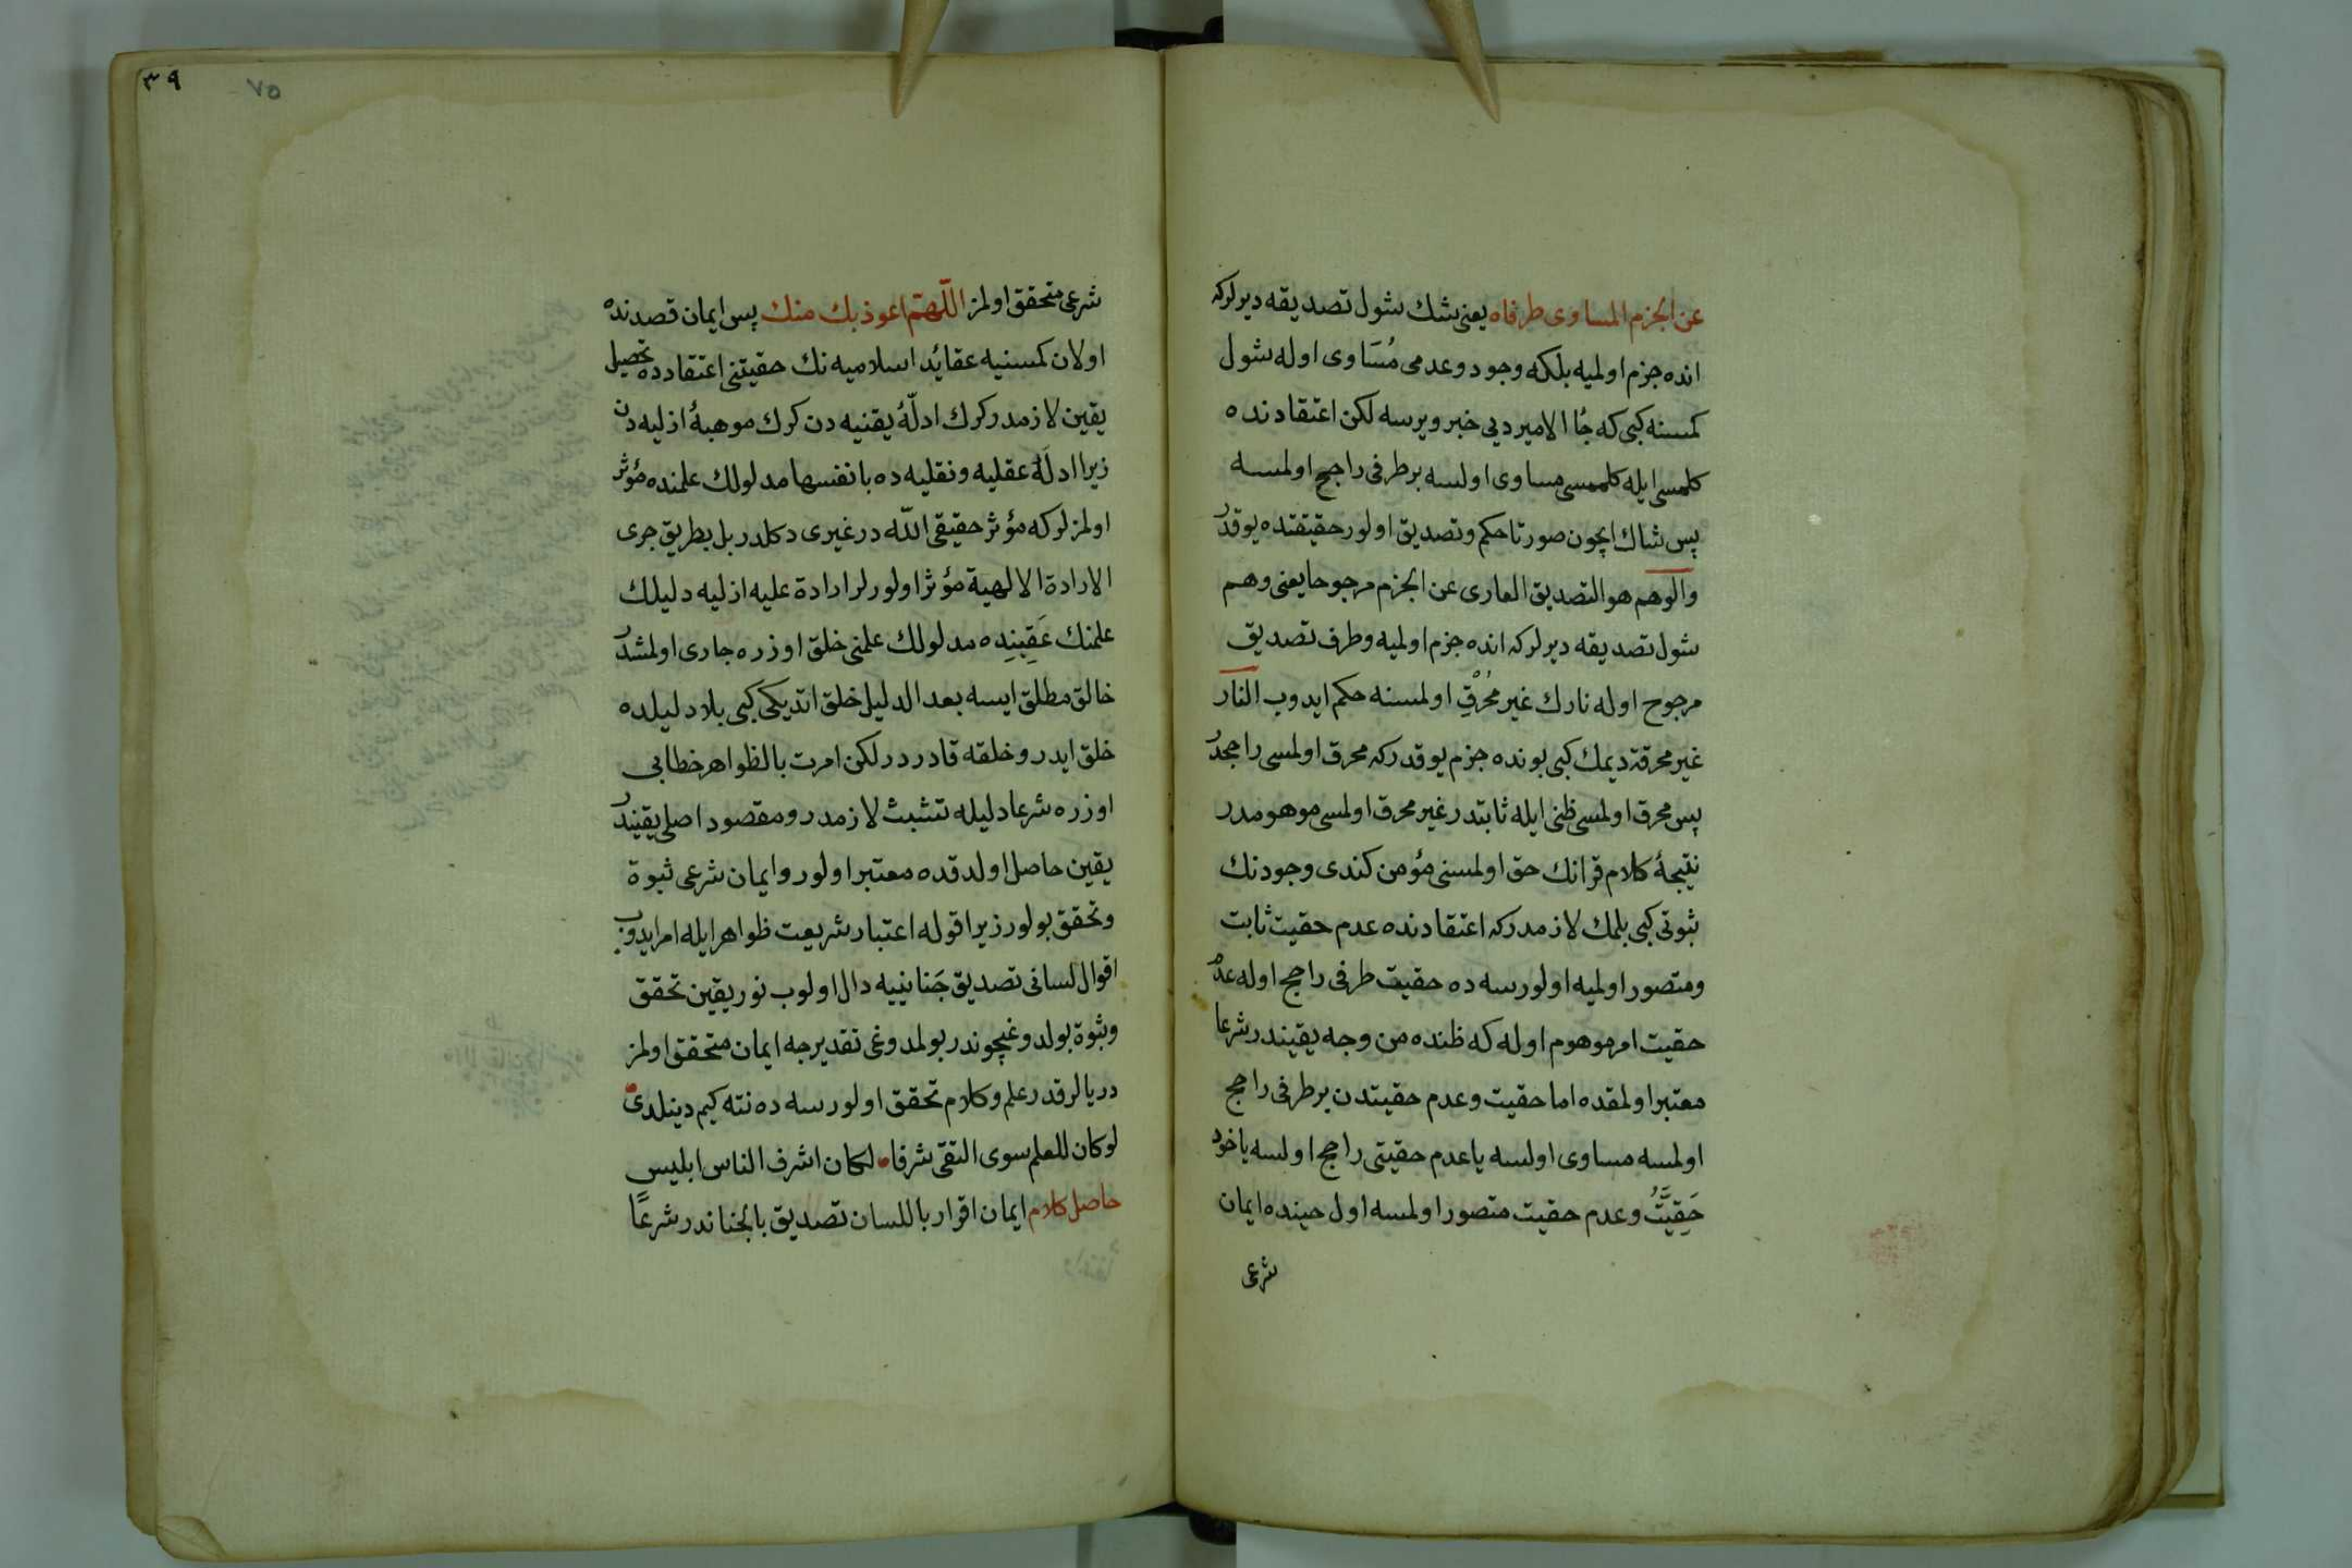 عن الجزم المساوى طرفاه يعنى شك شول تصديقه ديرلركه
انده جزم اولميه بلكه وجود وعدمى مُسَاوى اوله شول
كمسنه كبى كه جُا الامير ديى خبر ويرسه لكن اعتقادنده
كلمسى ايله كلممسى مساوى اولسه برطرفى راجح اولمسه
پس شاك ايچون صورتا حكم وتصديق اولور حقيقتده يوقدر
والوهم هو التصديق العارى عن الجزم مرجوحا يعنى وهم
شول تصديقه ديرلركه انده جزم اولميه وطرف تصديق
مرجوح اوله نارك غير مُحْرِقِ اولمسنه حكم ايدوب النار
غير محرقة ديمك كبى بونده جزم يوقدركه محرق اولمسى راجحدر
پس محرق اولمسى ظنى ايله ثابتدر غير محرق اولمسى موهومدر
نتيجهٔ كلام قرانك حق اولمسنى مؤمن كندى وجودنك
ثبوتى كبى بلمك لازمدركه اعتقادنده عدم حقيت ثابت
ومتصور اولميه اولورسه ده حقيت طرفى راجح اوله عدم
حقيت امر موهوم اوله كه ظنده من وجه يقيندر شرعا
معتبر اولمقده اما حقيت وعدم حقيتدن برطرفى راجح
اولمسه مساوى اولسه يا عدم حقيتى راجح اولسه ياخود
حَقِيَّتُ وعدم حقيت متصور اولمسه اول حينده ايمان
شرعى
٣٩
٧٥
شرعى متحقق اولمز اللّهمّ اعوذ بك منك پس ايمان قصدنده
اولان كمسنيه عقايد اسلاميه نك حقيتنى اعتقادده تحصيل
يقين لازمدر كرك ادلّهٔ يقنيه دن كرك موهبهٔ ازليه دن
زيرا ادلّهٔ عقليه ونقليه ده بانفسها مدلولك علمنده مؤثر
اولمزلر كه مؤثر حقيقى اللّه در غيرى دكلدر بل بطريق جرى
الارادة الالهية مؤثر اولورلر ارادة عليه ازليه دليلك
علمنك عَقِيبِنده مدلولك علمنى خلق اوزره جارى اولمشدر
خالق مطلق ايسه بعد الدليل خلق اتديكى كبى بلا دليلده
خلق ايدر وخلقه قادردر لكن امرت بالظواهر خطابى
اوزره شرعا دليله تشبث لازمدر ومقصود اصلى يقيندر
يقين حاصل اولدقده معتبر اولور وايمان شرعى ثبوة
وتحقق بولور زيرا قوله اعتبار شريعت ظواهر ايله امر ايدوب
اقوال لسانى تصديق جَنانييه دال اولوب نور يقين تحقق
وثبوة بولدوغيچوندر بولمدوغى تقديرجه ايمان متحقق اولمز
دريالرقدر علم وكلام تحقق اولورسه ده نته كيم دينلدى
لوكان للعلم سوى التقى شرفا • لكان اشرف الناس ابليس
حاصل كلام ايمان اقرار باللسان تصديق بالجناندر شرعًا